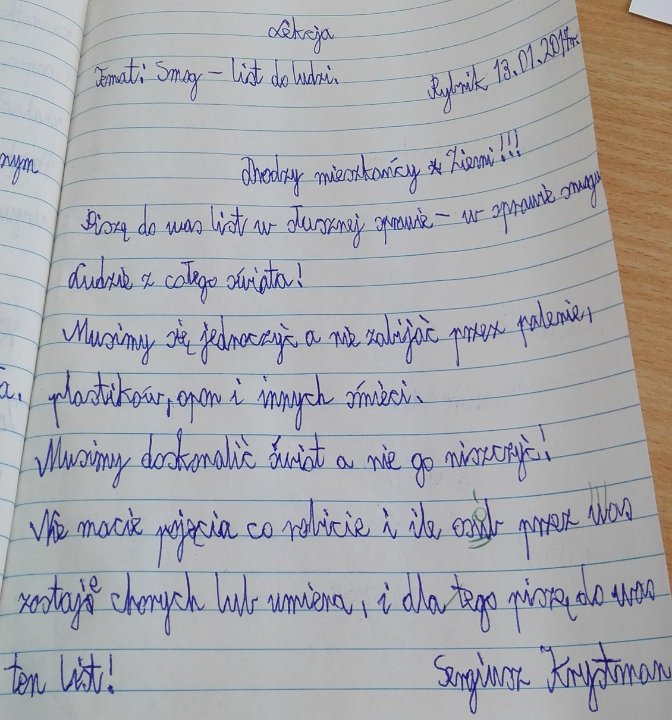 Lekcja
Temat: Smog – list do ludzi.
Rybnik 13.01.2017r.
Drodzy mieszkańcy z Ziemi!!!
Piszę do was list w słusznej sprawie – w sprawie smogu
Ludzie z całego świata!
Musimy się jednoczyć a nie zabijać przez palenie,
plastików, opon i innych śmieci.
Musimy doskonalić świat a nie go niszczyć!
Nie macie pojęcia co robicie i ile osób przez Was
zostaję chorych lub umiera, i dla tego piszę do was
ten list!
Sergiusz Krystman
nym
a.